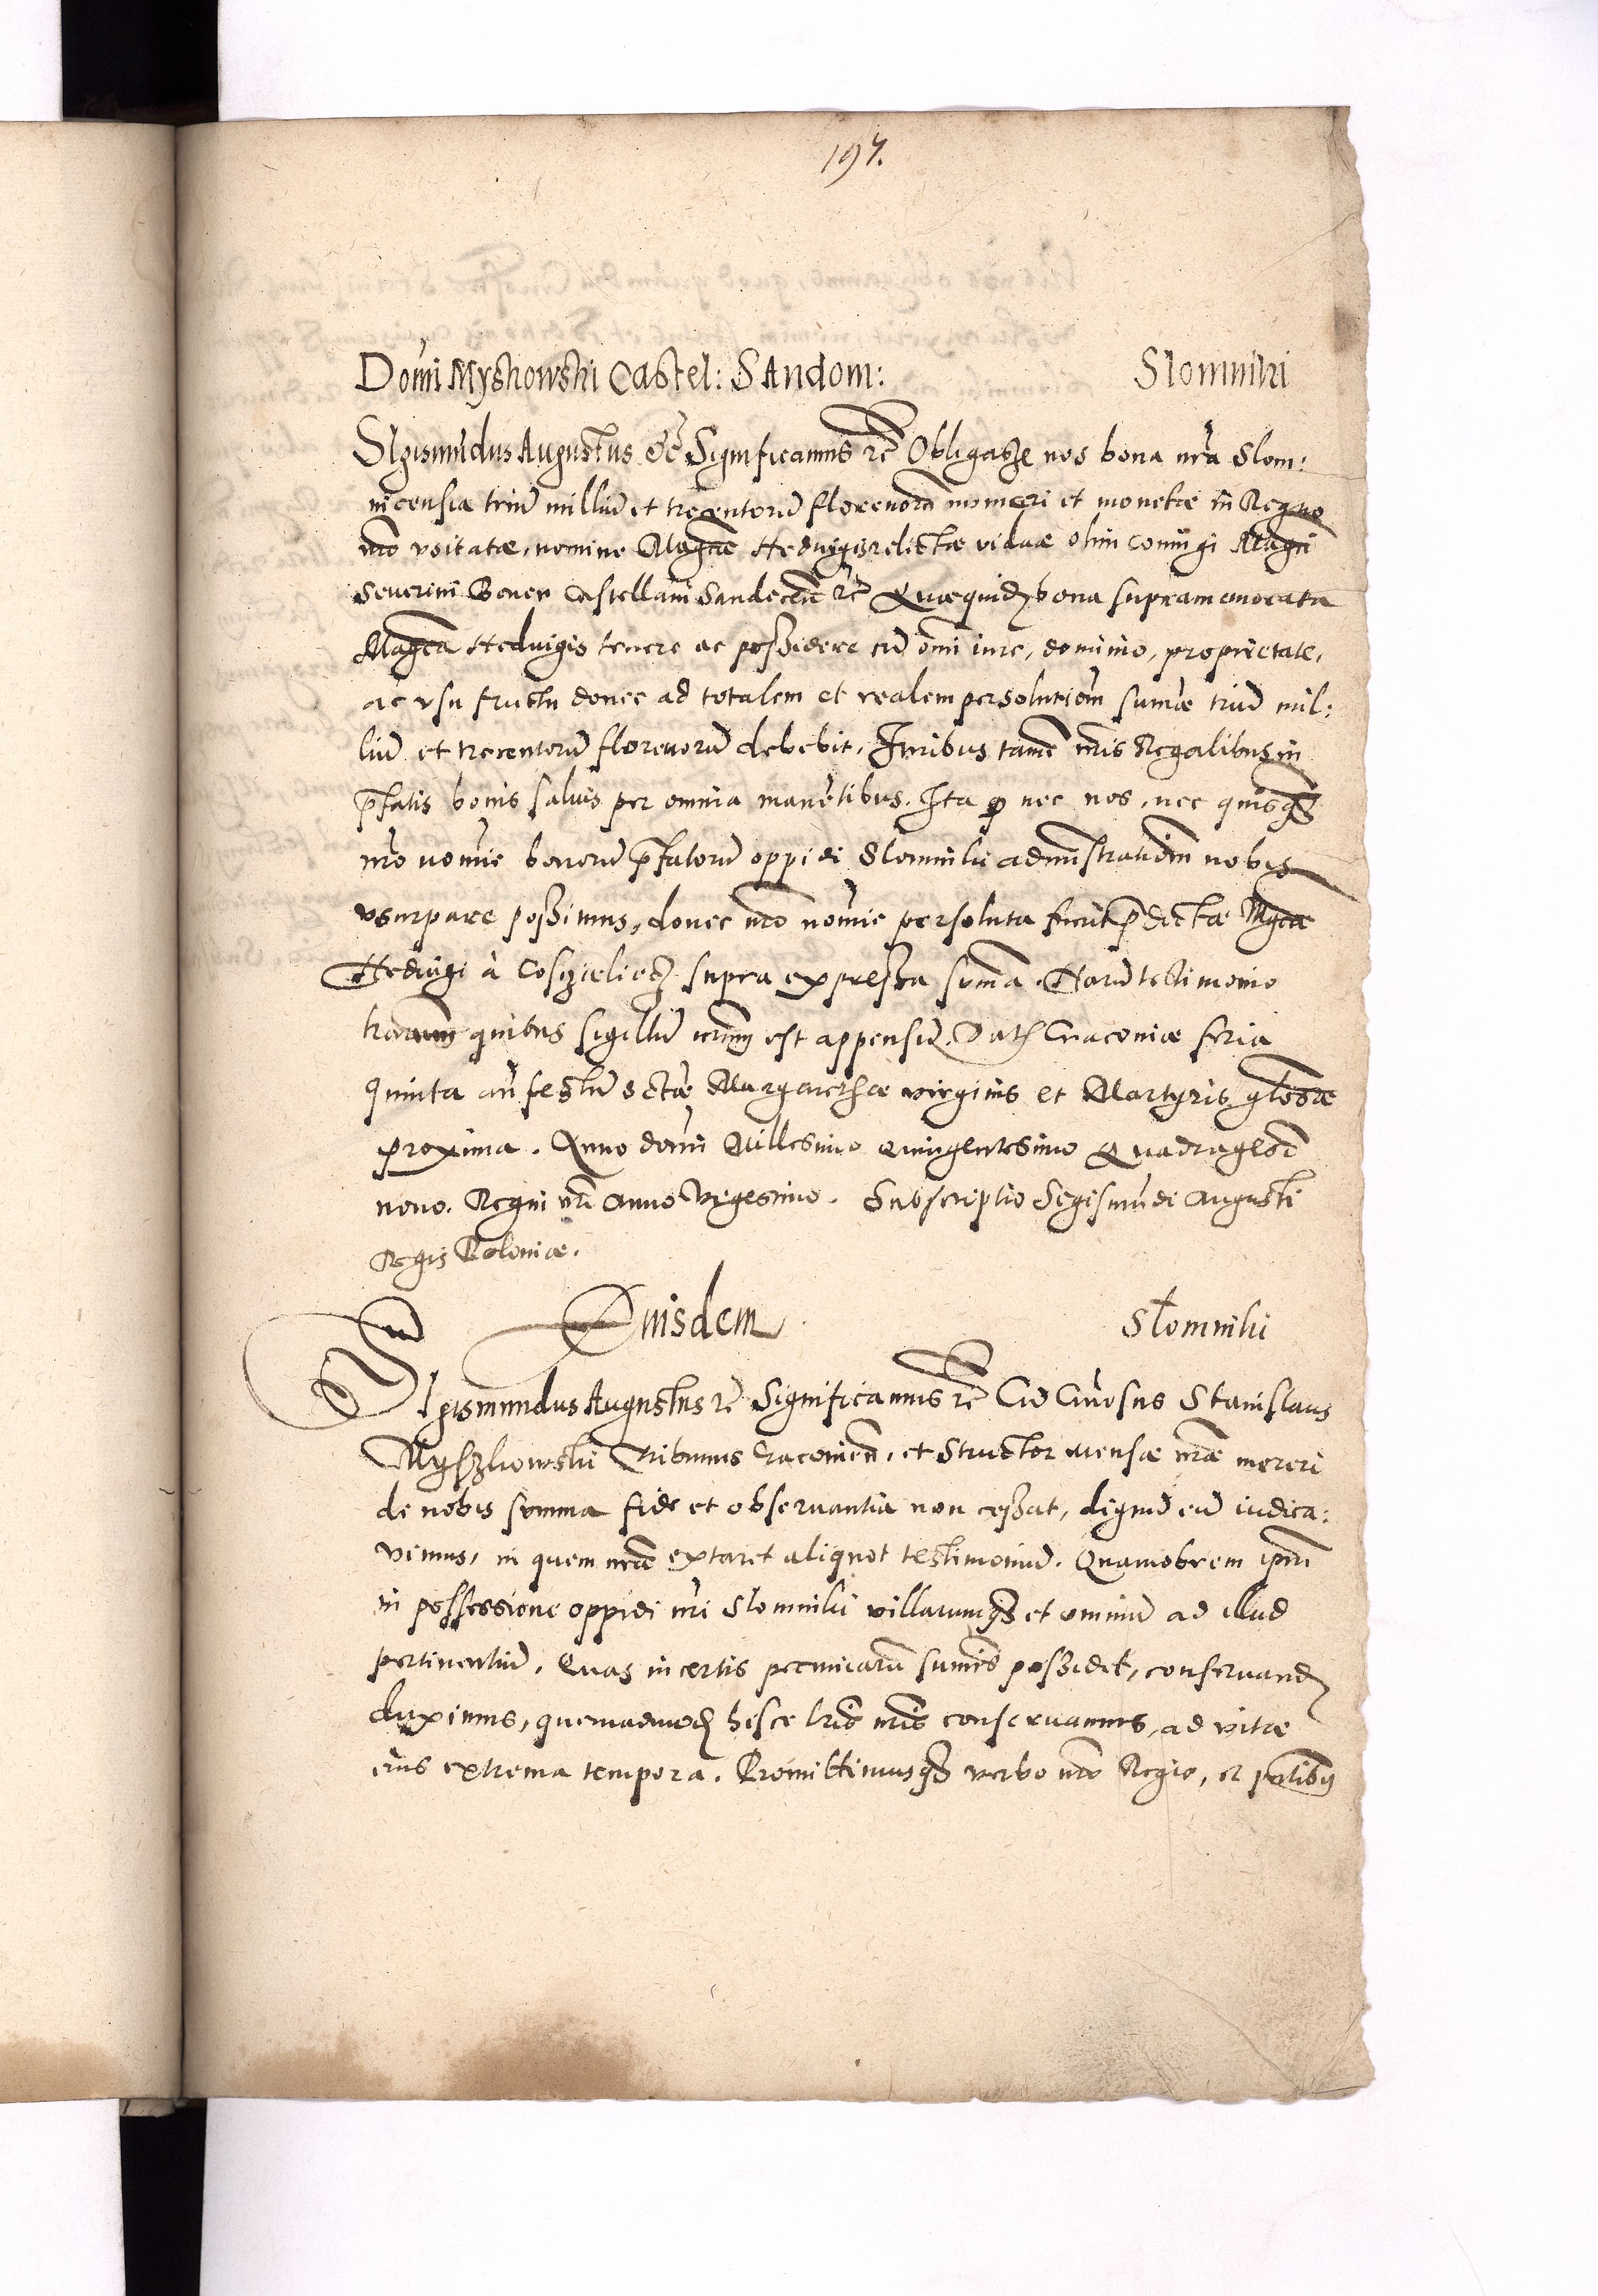 197.
Domi Myskowski Castel: Sandom: Slomniki
Sigismudus Augustus &c Significamus &c Obligasse nos bona nra Slom:
nicensia triu milliu et trecentoru florenoru numeri et monetæ in Regno
nro vsitatæ, nomine Magcæ Hedvigis relictæ viduæ olim coniugi Magci
Severini Boner Castellani Sandecen &c Quæquid bona supramemorata
Magca Hedvigis tenere ac possidere cu omi iure, dominio, proprietate,
ac vsu fructu donec ad totalem et realem persolutiom sumæ triu mil:
liu et trecentoru florenoru debebit. Iuribus tame nris Regalibus in
pfatis bonis salvis per omnia manetibus. Ita q nec nos, nec quisq
nro nomie bonoru pfatoru oppidi Slomniki admistratiom nobis
vsurpare possimus, donec nro nomie persoluta fuerit pdictæ Mgcæ
Hedvigi à Cosczieliecz supra expressa suma. Haru testimonio
lrarum quibus sigillu nrum est appensu. Dat Cracoviæ feria
quinta an festu sctæ Margarethæ virginis et Martyris glosæ
proxima. Anno domi Millesimo Quingentesimo Quadragesi
nono. Regni nri Anno Vigesimo. Subscriptio Segismudi Augusti
Regis Poloniæ.
Eiusdem Słomniki
Sigismundus Augustus &c Significamus &c Cu Gnosus Stanislaus
Myszkowski Tribunus Cracovien, et Structor mensæ nræ mereri
de nobis summa fide et observantia non cessat, dignu eu iudica:
vimus, in quem nræ extaret aliquot testimoniu. Quamobrem ipm
in possessione oppidi nri Slomniki villarumq et omniu ad illud
pertinentiu, Quas in certis pecuniaru sumis possidet, conservand
duximus, quemadmod hisce lris nris conservamus, ad vitæ
eius extrema tempora. Promittimusq verbo nro Regio, et